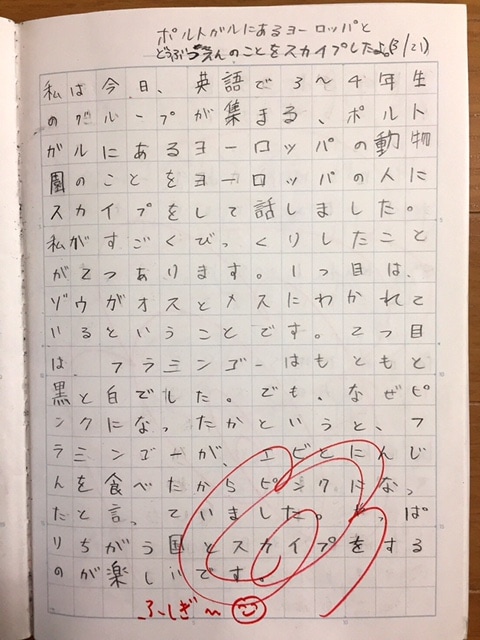 ポルトガルにあるヨーロッパと
どうぶつえんのことをスカイプしたよ。(3/21)
私は今日、英語で3〜4年生
のグループが集まる、ポルト
ガルにあるヨーロッパの動物
園のことをヨーロッパの人に
スカイプをして話しました。
私がすごくびっくりしたこと
が2つあります。1つ目は、
ゾウがオスとメスにわかれて
いるということです。2つ目
は、フラミンゴーはもともと
黒と白でした。でも、なぜピ
ンクになったかというと、フ
ラミンゴーが、エビとにんじ
んを食べたからピンクになっ
たと言っていました。やっぱ
りちがう国とスカイプをする
のが楽しいです。
ふしぎ〜